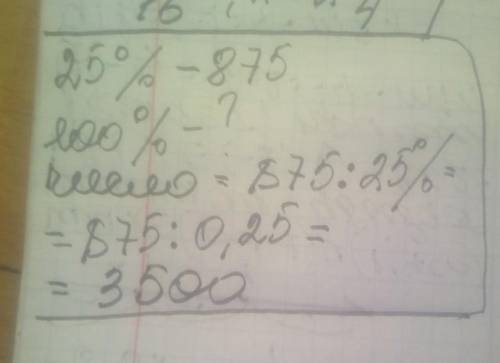 25% - 875
100% - ?
число = 875 : 25% =
= 875 : 0,25 =
= 3500